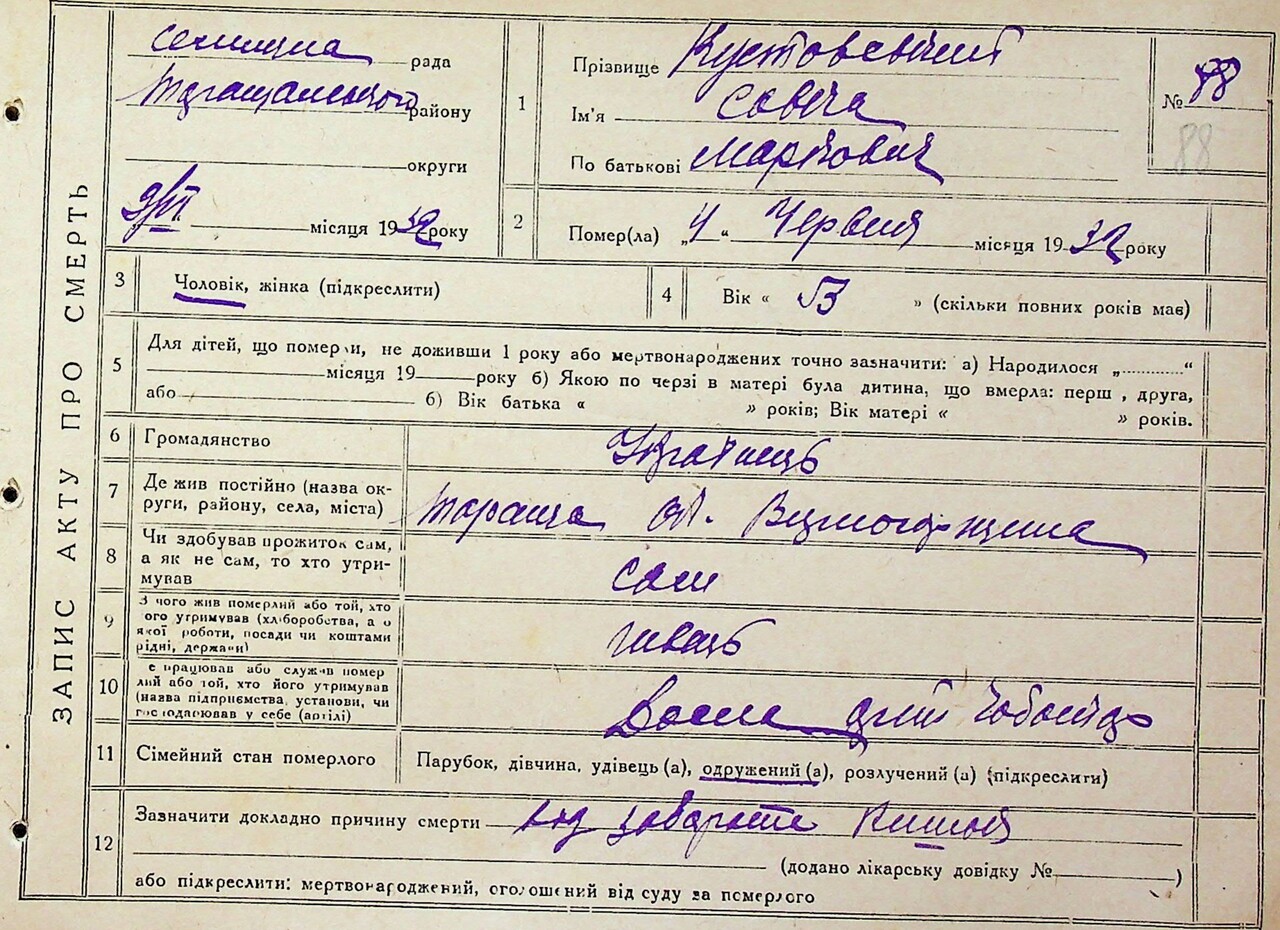 ЗАПИС АКТУ ПРО СМЕРТЬ
рада
району
округи
9/VI місяця 1932 року
1 Прізвище
Ім'я Совіча
По батькові Маркович
№ 88
88
2 Помер(ла) „4“ Червня місяця 1932 року
3 Чоловік, жінка (підкреслити)
4 Вік « 53 » (скільки повних років мав)
5 Для дітей, що померли, не доживши 1 року або мертвонароджених точно зазначити: а) Народилося „............“
місяця 19 року б) Якою по черзі в матері була дитина, що вмерла: перш , друга,
або б) Вік батька « » років; Вік матері « » років.
6 Громадянство Українець
7 Де жив постійно (назва ок-
руги, району, села, міста) Тараща
8 Чи здобував прожиток сам,
а як не сам, то хто утри-
мував сам
9 З чого жив померлий або той, хто
ого утримував (хліборобства, а о
якої роботи, посади чи коштами
рідні, держави) швець
10 е працював або служив помер
лий або той, хто його утримував
(назва підприємства, установи, чи
господарював у себе (артілі)
11 Сімейний стан померлого Парубок, дівчина, удівець (а), одружений (а), розлучений (а) (підкреслити)
12 Зазначити докладно причину смерти од завороте Кишок
(додано лікарську довідку № )
або підкреслити: мертвонароджений, оголошений від суду за померлого